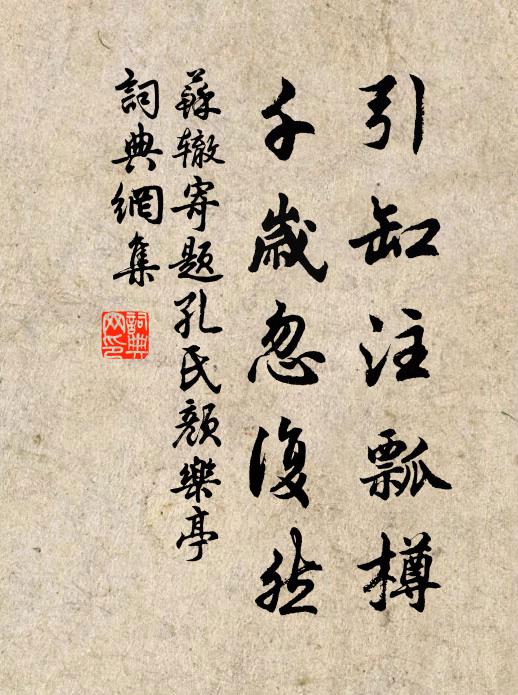 引缸注瓢樽
千歲忽復然
蘇轍寄題孔氏顏樂亭
詞典網集
詞典
网印